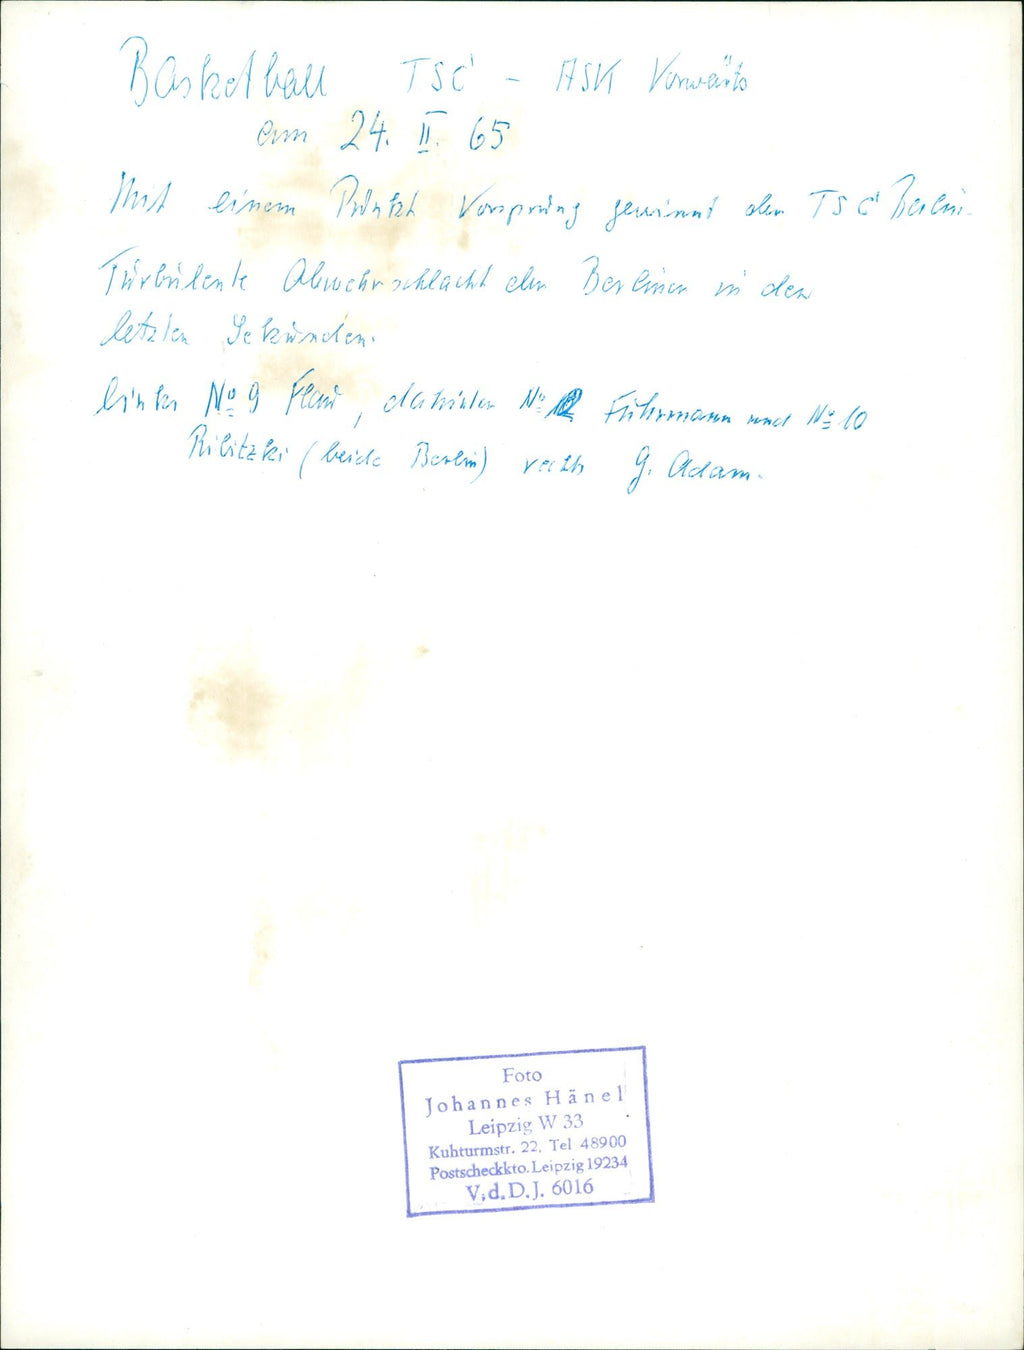 Basketball TSC - ASK Vorwärts
am 24. II. 65
Mit einem Punkt Vorsprung gewinnt der TSC Berlin.
Turbulente Abwehrschlacht der Berliner in den
letzten Sekunden.
links No 9 Flau, dahinter No 12 Fuhrmann und No 10
Rilitzki (beide Berlin) rechts G. Adam.
Foto
Johannes Hänel
Leipzig W 33
Kuhturmstr. 22, Tel 48900
Postscheckkto. Leipzig 19234
V.d.D.J. 6016